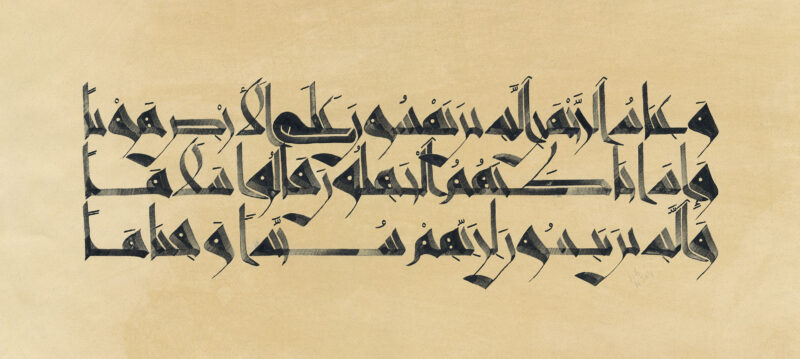 وَعِبَادُ الرَّحْمَٰنِ الَّذِينَ يَمْشُونَ عَلَى الْأَرْضِ هَوْنًا
وَإِذَا خَاطَبَهُمُ الْجَاهِلُونَ قَالُوا سَلَامًا
وَالَّذِينَ يَبِيتُونَ لِرَبِّهِمْ سُجَّدًا وَقِيَامًا